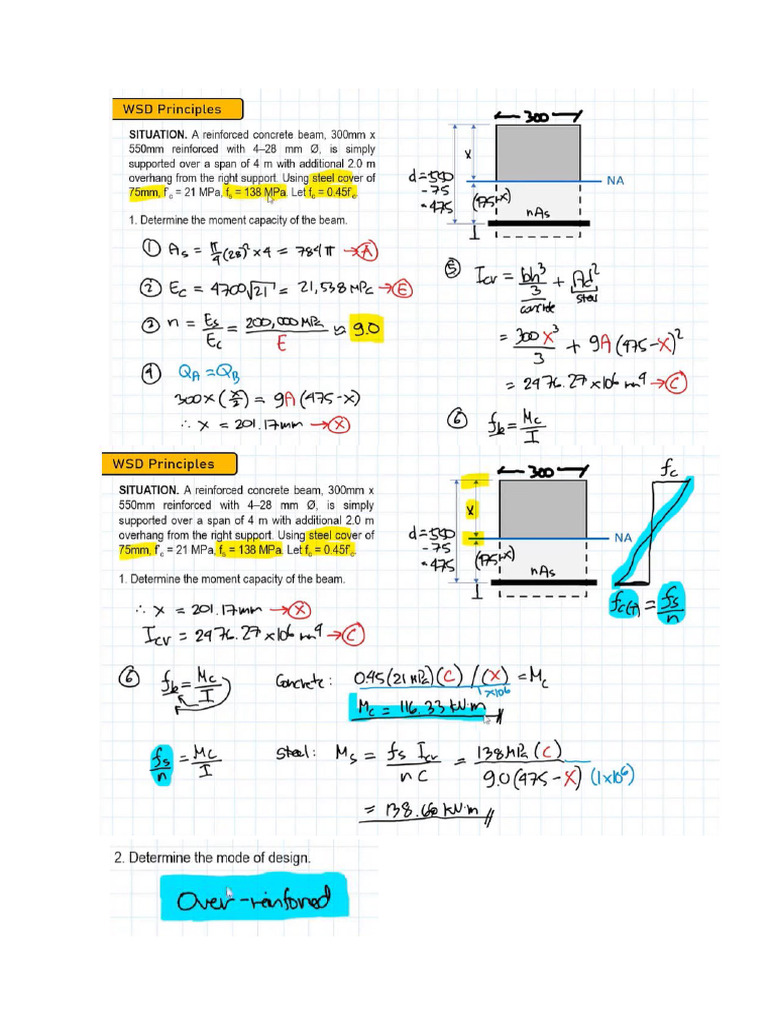 WSD Principles
SITUATION. A reinforced concrete beam, 300mm x
550mm reinforced with 4–28 mm Ø, is simply
supported over a span of 4 m with additional 2.0 m
overhang from the right support. Using steel cover of
75mm, f'c = 21 MPa, fs = 138 MPa. Let fc = 0.45f'c.
1. Determine the moment capacity of the beam.
① As = π/4 (28)² x 4 = 784π → Ⓐ
② Ec = 4700√21 = 21,538 MPa → Ⓔ
③ n = Es/Ec = 200,000 MPa/E ≈ 9.0
④ QA = QB
300x (x/2) = 9A (475-x)
∴ x = 201.17mm → Ⓧ
300
x
d = 550
- 75
= 475
(475-x)
NA
nAs
⑤ Icr = bh³/3 + Ad²
concrete steel
= 300x³/3 + 9A (475-x)²
= 2976.27 x10⁶ mm⁴ → Ⓒ
⑥ fb = Mc/I
WSD Principles
SITUATION. A reinforced concrete beam, 300mm x
550mm reinforced with 4–28 mm Ø, is simply
supported over a span of 4 m with additional 2.0 m
overhang from the right support. Using steel cover of
75mm, f'c = 21 MPa, fs = 138 MPa. Let fc = 0.45f'c.
1. Determine the moment capacity of the beam.
∴ x = 201.17mm → Ⓧ
Icr = 2976.27 x10⁶ mm⁴ → Ⓒ
300
x
d = 550
- 75
= 475
(475-x)
NA
nAs
fc
fc(T) = fs/n
⑥ fb = Mc/I
Concrete: 0.45 (21 MPa) (C) / (X) = Mc
1x10⁶
Mc = 116.33 kN·m
fs/n = Mc/I
Steel: Ms = fs Icr / n c = 138 MPa (C) / 9.0 (475 - X) (1x10⁶)
= 138.60 kN·m
2. Determine the mode of design.
Over-reinforced